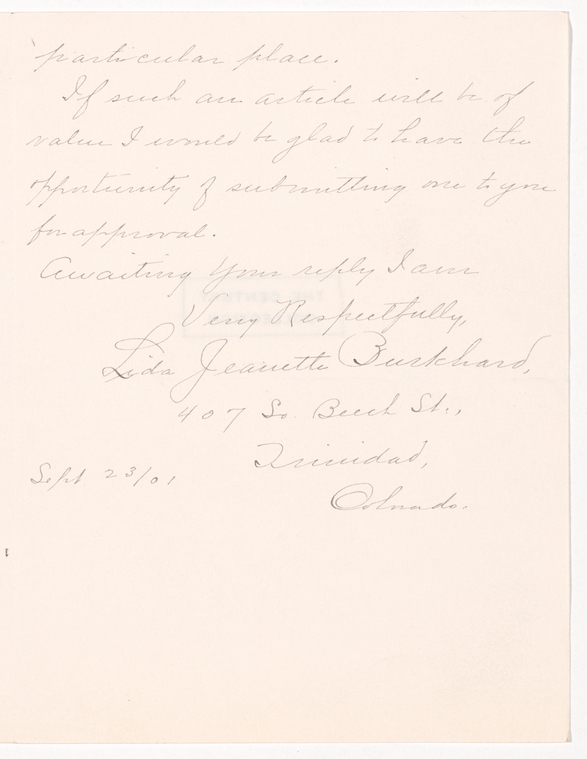 particular place.
If such an article will be of
value I would be glad to have the
opportunity of submitting one to you
for approval.
Awaiting your reply I am
Very Respectfully,
Lida Jeanette Burkhard,
407 So. Beech St.,
Trinidad,
Sept 23/01
Colorado.